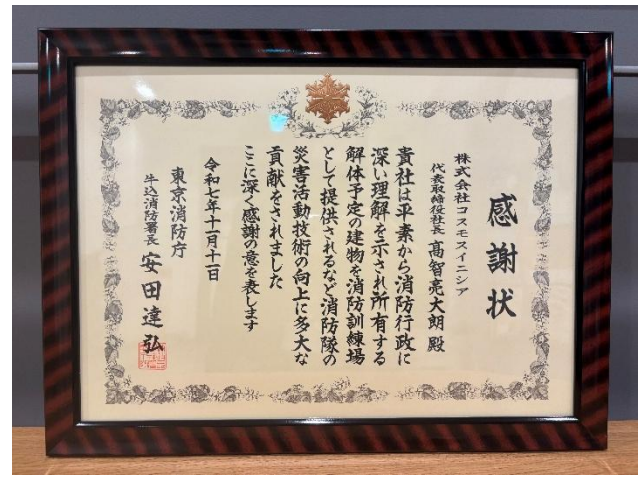 感謝状
株式会社コスモスイニシア
代表取締役社長 高智亮大朗 殿
貴社は平素から消防行政に
深い理解を示され所有する
解体予定の建物を消防訓練場
として提供されるなど消防隊の
災害活動技術の向上に多大な
貢献をされました
ここに深く感謝の意を表します
令和七年十一月十一日
東京消防庁
牛込消防署長 安田達弘